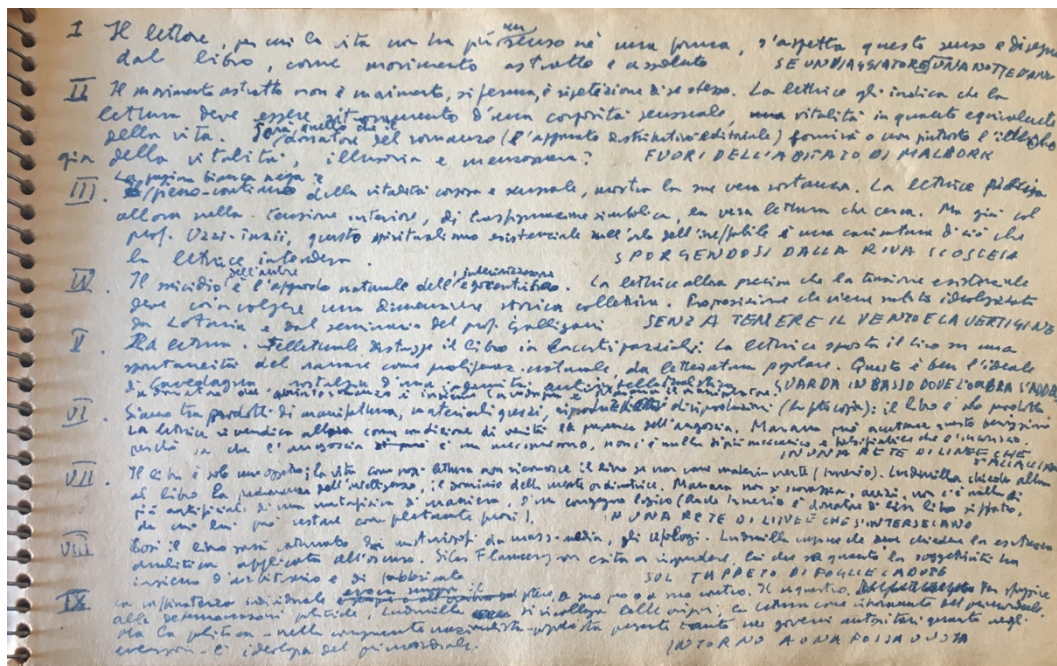 I Il lettore, per cui la vita non ha più un senso né una forma, s'aspetta questo senso e disegno
dal libro, come movimento astratto e assoluto SE UN VIAGGIATORE UNA NOTTE D'INV
II Il movimento astratto non è movimento, si ferma, è ripetizione di se stesso. La lettrice gli indica che la
lettura deve essere d'una corposità sensuale, vitalità in quanto equivalente
della vita. Sarà quello che il donatore del romanzo (l'apparato distributivo editoriale) fornirà o non piuttosto
della vitalità, illusoria e menzognera? FUORI DELL'ABITATO DI MALBORK
La pagina bianca nega il
III. pieno-continuo della vitalità corposa e sensuale, mostra la sua vera sostanza. La lettrice
allora nella tensione interiore, di trasfigurazione simbolica, la vera lettura che cerca. Ma già col
prof. Uzzi-Tuzii, questo spiritualismo esistenziale sull'orlo dell'ineffabile è una caricatura di ciò che
la lettrice intendeva. SPORGENDOSI DALLA RIVA SCOSCESA
IV. Il suicidio dell'autore è l'approdo naturale dell' interiorizzazione. La lettrice allora precisa che la tensione esistenziale
deve coinvolgere una dimensione storica collettiva. Proposizione che viene subito ideologizzata
da Lotaria e dal seminario del prof. Galligani SENZA TEMERE IL VENTO E LA VERTIGINE
V. La lettura intellettuale distrugge il libro in parziali. La lettrice sposta il tiro su una
spontaneità del narrare come naturale, da letteratura popolare. Questo è ben l'ideale
di Cavedagna, nostalgia d'una ingenuità GUARDA IN BASSO DOVE L'OMBRA S'ADDE
VI. Siamo tra prodotti di manifattura, materiali grezzi, riproduzioni di riproduzioni: il libro è solo prodotto.
La lettrice rivendica allora come condizione di verità la presenza dell'angoscia. Marana può accettare questo benissimo
perché sa che l'angoscia è un meccanismo, non c'è nulla di più meccanico e falsificabile che l'inconscio.
IN UNA RETE DI LINEE CHE S'ALLACCIANO
VII. Il libro è solo un oggetto; la vita come non-lettura non riconosce il libro se non come materia inerte (Irnerio). Ludmilla chiede allora
al libro la dell'intelligenza, il dominio della mente ordinatrice. Marana non si scoraggia, anzi, non c'è nulla di
più artificiale di una metafisica di maniera, d'un congegno logico (anche Irnerio è donatore di libri
da cui lui può restare completamente fuori). IN UNA RETE DI LINEE CHE S'INTERSECANO
VIII Così il libro sarà dai mass-media, gli Ludmilla
analitica applicata all'oscuro. Silas Flannery non esita a rispondere, lui che sa quanto la soggettività sia
insieme d'arbitrio e di fabbricato SUL TAPPETO DI FOGLIE
IX La individuale evoca sempre il padre, a suo pro o a suo contro. Il Per sfuggire
alle determinazioni politiche, Ludmilla si ricollega alle origini, la lettura come ritrovamento del primordiale.
Ma la politica – nella componente presente tanto nei governi autoritari quanto negli
eversori – è ideologia del primordiale. INTORNO A UNA FOSSA VUOTA